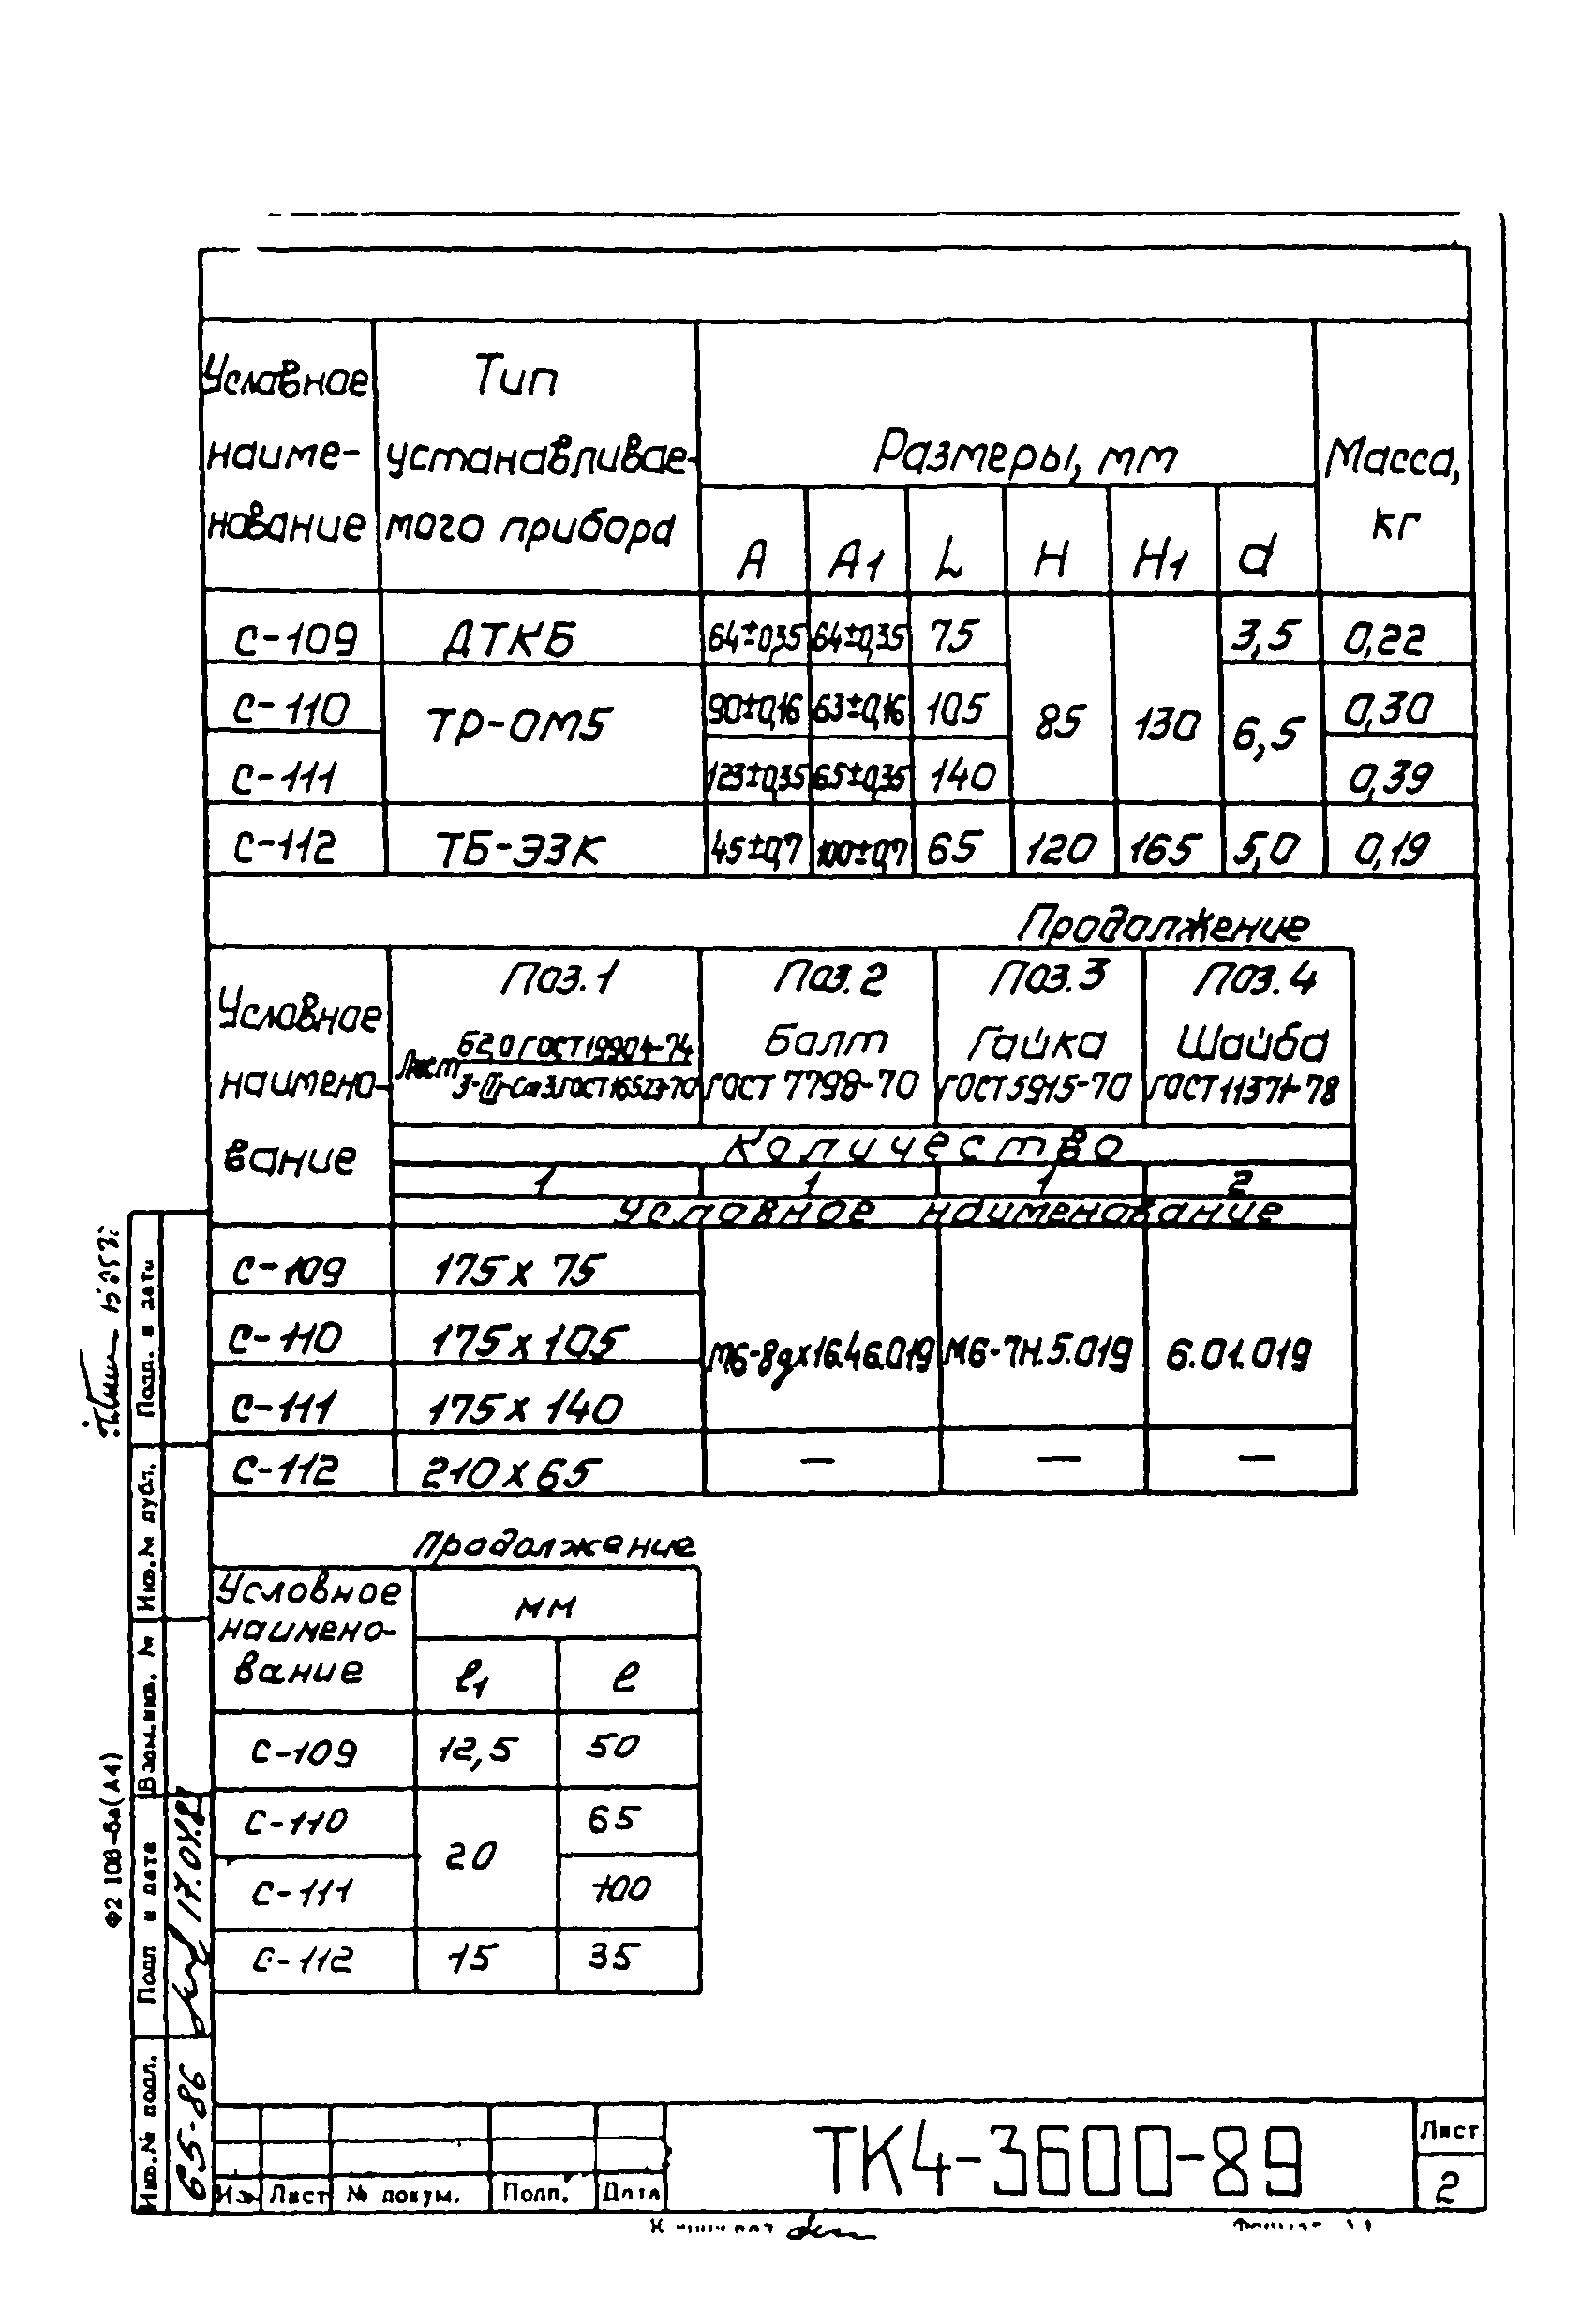 Условное наиме- нование
Тип устанавливае- мого прибора
Размеры, мм
Масса, кг
A A1 L H H1 d
С-109 ДТКБ 64±0,35 64±0,35 75 85 130 3,5 0,22
С-110 ТР-ОМ5 90±0,16 63±0,16 105 6,5 0,30
С-111 123±0,35 65±0,35 140 0,39
С-112 ТБ-ЭЗК 45±0,7 100±0,7 65 120 165 5,0 0,19
Продолжение
Условное наимено- вание
Поз.1 Поз.2 Поз.3 Поз.4
Лист Б2,0 ГОСТ 19904-74
Болт Гайка Шайба
ГОСТ 16523-70 ГОСТ 7798-70 ГОСТ 5915-70 ГОСТ 11371-78
Количество
1 1 1 2
Условное наименование
С-109 175 х 75
С-110 175 х 105 М6-8gх16.46.019 М6-7Н.5.019 6.01.019
С-111 175 х 140
С-112 210 х 65 — — —
Продолжение
Условное наимено- вание
мм
ℓ1 ℓ
С-109 12,5 50
С-110 20 65
С-111 100
С-112 15 35
Подп. и дата
Инв.№ дубл.
Взам.инв. №
Подп и дата
17.04.
Инв.№ подл.
65-86
Ф2 108-5а(А4)
Изм Лист № докум. Подп. Дата
ТК4-3600-89
Лист
2